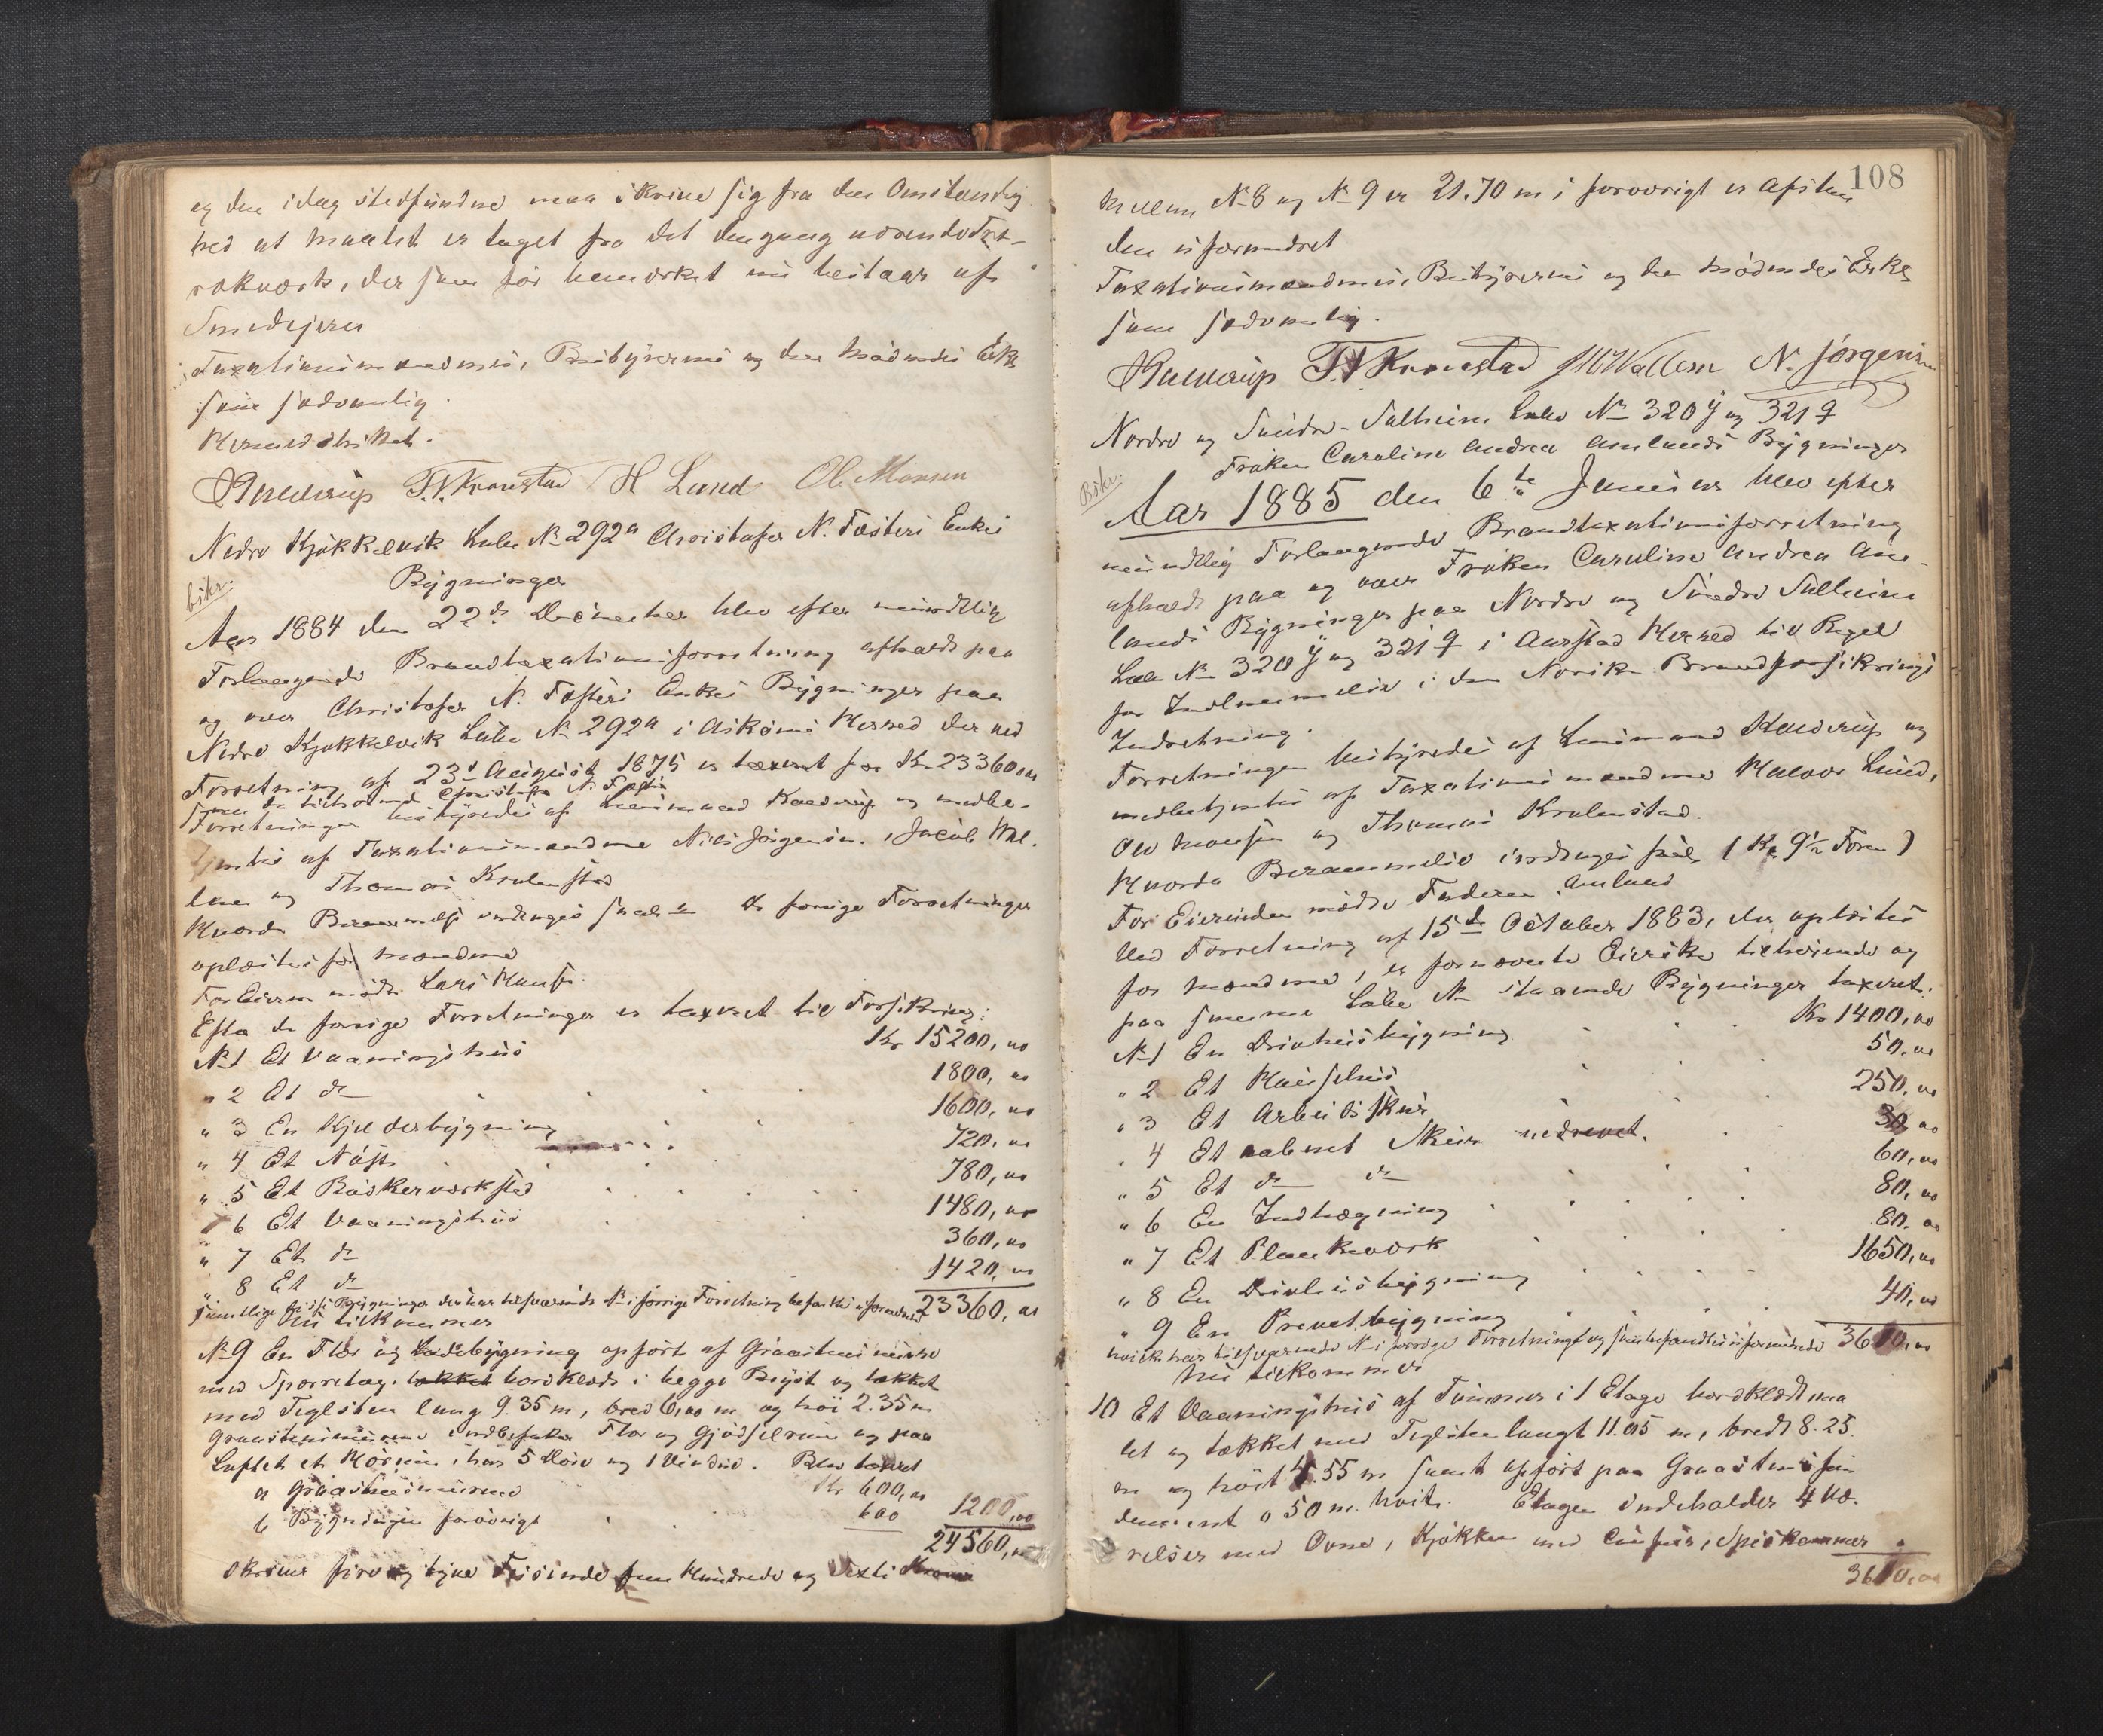 og den idag stedfundne maa skrive sig fra den Omstændig
hed at Maalet er taget fra det dengang værende
rækværk, der som før bemærket nu bestaar af
Smedejern
Taxationsmændenes, Bestyrerens og den mødendes Erkl
som sædvanlig.
Kaldrup T. T. Kronstad H Lund Ole Monsen
Nedre Kjøkkelvik Løbe No 292a Christofer N. Fosters Enkes
Bygninger
bskr.
Aar 1884 den 22de December blev efter mundtlig
Forlangende Brandtaxationsforretning afholdt paa
og over Christofer N. Fosters Enkes Bygninger paa
Nedre Kjøkkelvik Løbe No 292a i Askøens Herred der ved
Forretning af 23de August 1875 er taxeret for Kr 23360,00
som da tilhørende Christofer N. Foster
Forretningen bestyredes af Lensmand Kaldrup og medbe-
tjentes af Taxationsmændene Nils Jørgensen, Jacob Wal-
lem og Thomas Kronstad
Hvorda Berammelse inddrages saal. De forrige Forretninger
oplæstes for Mændene
For Eieren mødte Lars Hansen.
Efter de forrige Forretninger er taxeret til Forsikring:
No 1 Et Vaaningshus Kr 15200,00
" 2 Et do 1800,00
" 3 En Kjelderbygning 1600,00
" 4 Et Nøst 720,00
" 5 Et Bødkerværksted 780,00
" 6 Et Vaaningshus 1480,00
" 7 Et do 360,00
" 8 Et do 1420,00
samtlige disse Bygninger der har tilsvarende No i forrige Forretning befandtes uforandret 23360,00
Nu tilkommer
No 9 En Flor og Ladebygning opført af Graastensmure
med Sparretag, bordklædt i begge Bryst og tækket
med Teglsten lang 9.35 m, bred 6,00 m og høi 2.35 m
Graastensmurene indbefatter Flor og Gjødselrum og paa
Loftet et Hørum, har 5 Døre og 1 Vindue. Blev taxeret
a Graastensmurene Kr 600,00
b Bygningen forøvrigt 600 1200,00
24560,00
skriver fire og tyve Tusinde fem Hundrede og Sexti Kroner
108
mellem No 8 og No 9 er 21.70 m i forøvrigt er Afstan
den uforandret
Taxationsmændenes, Bestyrerens og den mødendes Erkl
som sædvanlig.
Kaldrup T. T. Kronstad J M Wallem N. Jørgensen
Nordre og Søndre Solheim Løbe No 320 y og 321 q
Frøken Caroline Andrea Amlunds Bygninger
Bskr.
Aar 1885 den 6te Januar blev efter
mundtlig Forlangende Brandtaxationsforretning
afholdt paa og over Frøken Caroline Andrea Am-
lunds Bygninger paa Nordre og Søndre Solheim
Løbe No 320 y og 321 q i Aarstad Herred til Brug
for Indlemmelse i den Norske Brandforsikrings
Indretning.
Forretningen bestyredes af Lensmand Kaldrup og
medbetjentes af Taxationsmændene Halvor Lund,
Ole Monsen og Thomas Kronstad.
Hvorda Berammelse inddrages saal. (Kl 9½ Form)
For Eierinden mødte Faderen Amlund
Ved Forretning af 15de October 1883, der oplæstes
for Mændene, er fornævnte Eierske tilhørende og
paa samme Løbe No staaende Bygninger taxeret.
No 1 En Drivhusbygning Kr 1400,00
" 2 Et 50,00
" 3 Et Arbeidsskur 250,00
" 4 Et aabent Skur nedrevet. 30 00
" 5 Et do do 60,00
" 6 En Indhægning 80,00
" 7 Et Plankeværk 80.00
" 8 En Drivhusbygning 1650,00
" 9 En Privetbygning 40,00
hvilke har tilsvarende No i forrige Forretning og som befandtes uforandrede 3610,00
Nu tilkommer
10 Et Vaaningshus af Tømmer i 1 Etage bordklædt ma
let og tækket med Teglsten langt 11.05 m, bredt 8.25
m og høit 4.55 m samt opført paa Graastensfun
dament 0 50 m. høit. Etagen indeholder 4 Væ-
relser med Ovne, Kjøkken med Comfur, Spiskammer
3610,00